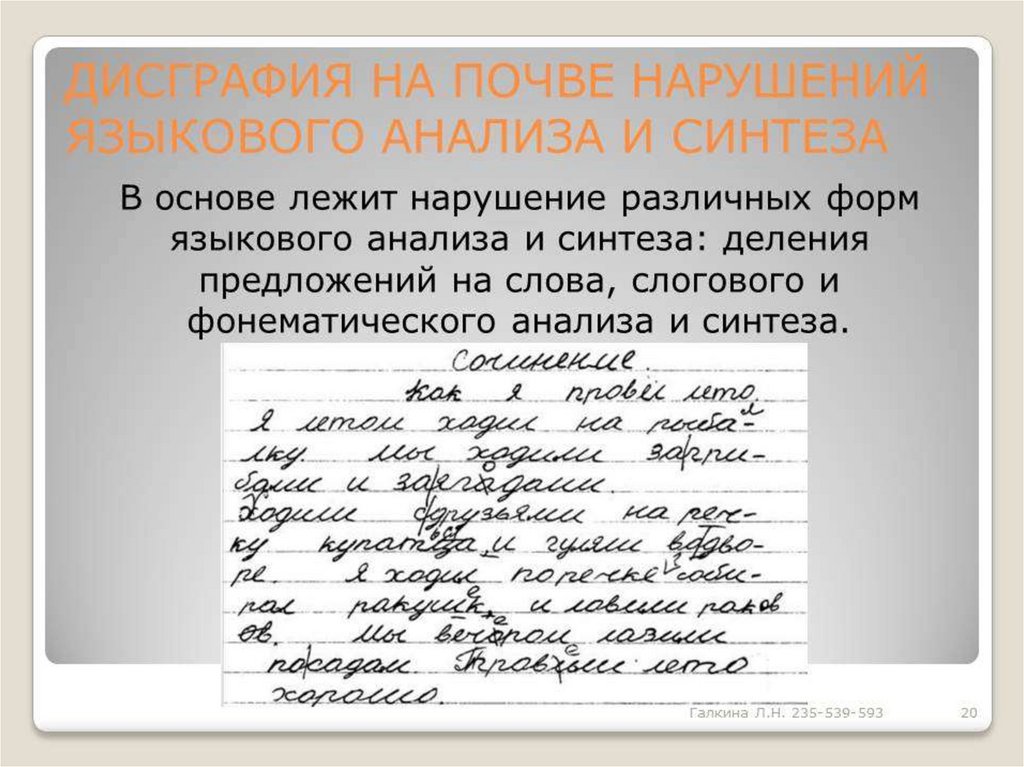 ДИСГРАФИЯ НА ПОЧВЕ НАРУШЕНИЙ
ЯЗЫКОВОГО АНАЛИЗА И СИНТЕЗА
В основе лежит нарушение различных форм
языкового анализа и синтеза: деления
предложений на слова, слогового и
фонематического анализа и синтеза.
Сочинение.
Как я провёл лето.
Я летом ходил на рыба-
лку. Мы ходили загри-
бами и заягадами.
Ходили сдрузьями на реч-
ку купатца, и гуляли водво-
ре. Я ходил поречке соби-
рал ракушк, и ловили раков
ов. Мы вечором лазили
посадам. лето
хорошо.
Галкина Л.Н. 235-539-593
20